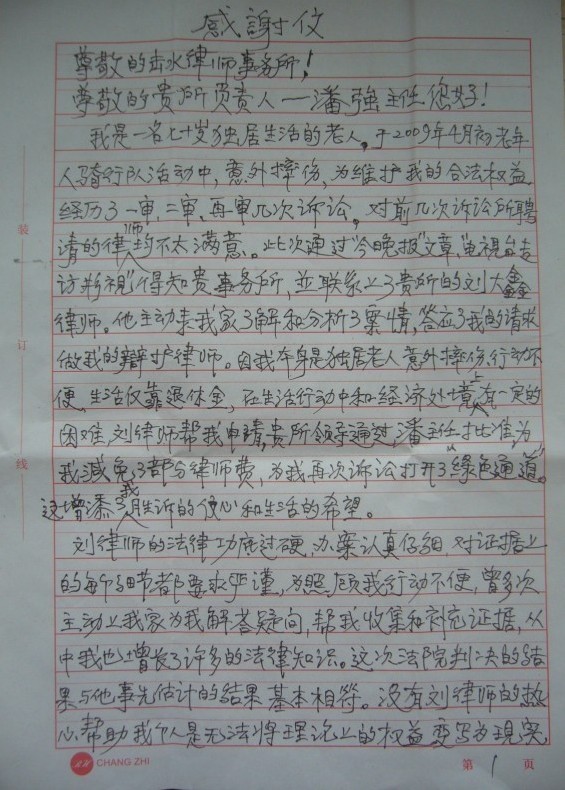 感謝仪
尊敬的赤水律师事务所！
尊敬的贵所负责人——潘强主任您好！
我是一名七十岁独居生活的老人，于2009年4月初老年
人骑行队活动中，意外摔伤，为维护我的合法权益
经历了一审，二审、再审几次诉讼。对前几次诉讼所聘
请的律师均不太满意。此次通过"今晚报"文章，"电视台走
访 视"得知贵事务所，並联系上了贵所的刘大鑫
律师。他主动来我家了解和分析了案情，答应了我的请求
做我的辩护律师。因我本身是独居老人意外摔伤，行动不
便，生活仅靠退休金，在生活行动中和经济处境上有一定的
困难，刘律师帮我申请，贵所领导通过，潘主任批准，为
我减免了部分律师费，为我再次诉讼打开了"绿色通道"。
这增添了我胜诉的信心和生活的希望。
刘律师的法律功底过硬，办案认真仔细，对证据上
的每个细节都要求严谨，为照顾我行动不便，曾多次
主动上我家为我解答疑问，帮我收集和补充证据，从
中我也增长了许多的法律知识。这次法院判决的结
果与他事先估计的结果基本相符。没有刘律师的热
心帮助我个人是无法将理论上的权益变写为现实
装
订
线
CHANG ZHI
第 1 页